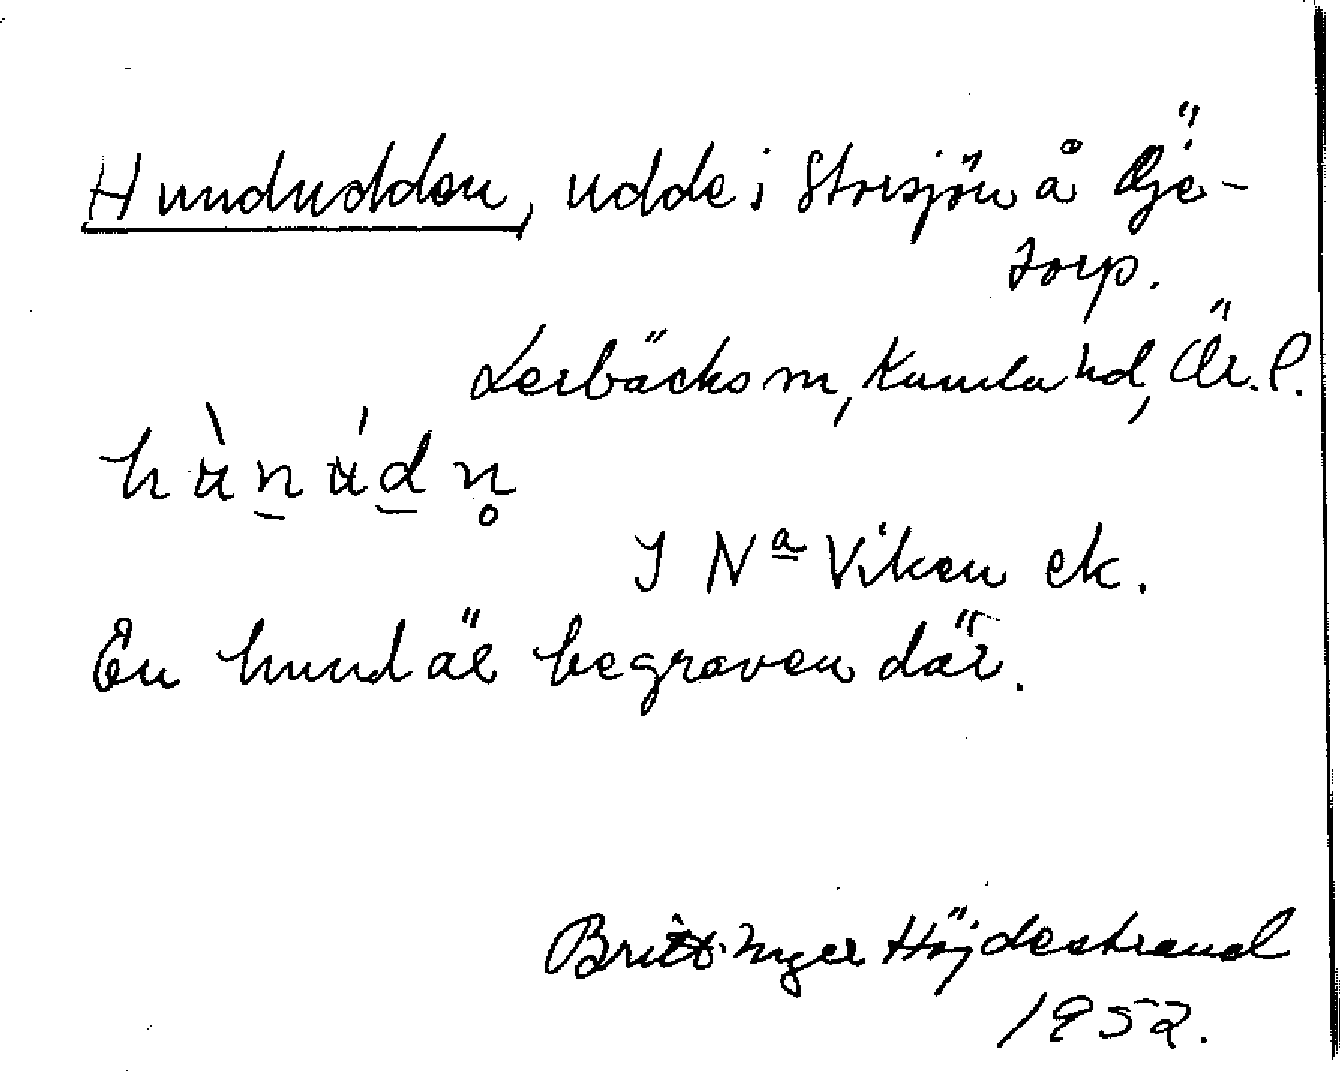 Hundudden, udde i Storsjön å Öje-
torp.
Lerbäcks sn, Kumla hd, Ör. l.
hùnúdn̥
I Na Viken ek.
En hund är begraven där.
Britt-Inger Höjdestrand
1952.